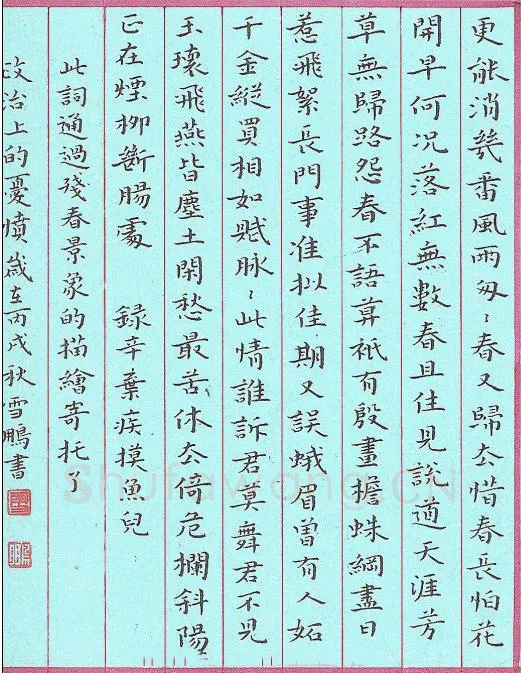 更能消幾番風雨匆〻春又歸去惜春長怕花
開早何況落紅無數春且住見說道天涯芳
草無歸路怨春不語算衹有殷畫檐蛛網盡日
惹飛絮長門事准拟佳期又誤蛾眉曾有人妬
千金縱買相如賦脉〻此情誰訴君莫舞君不見
玉環飛燕皆塵土閑愁最苦休去倚危欄斜陽
正在煙柳斷腸處 錄辛棄疾摸魚兒
此詞通過殘春景象的描繪寄托了
政治上的憂憤歲在丙戌秋雪鵬書